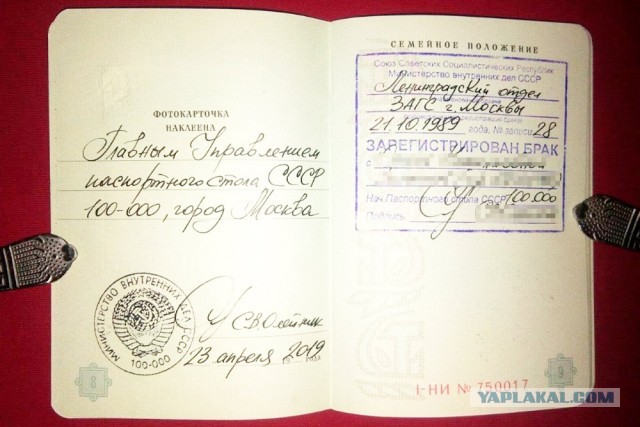 ФОТОКАРТОЧКА
НАКЛЕЕНА
Главным Управлением
паспортного стола СССР
100-000, город Москва
МИНИСТЕРСТВО ВНУТРЕННИХ ДЕЛ СССР
100-000
С.В.Олейник
23 апреля 2019
года
8
СЕМЕЙНОЕ ПОЛОЖЕНИЕ
Союз Советских Социалистических Республик
Министерство внутренних дел СССР
Ленинградский отдел
ЗАГС г. Москвы
21.10.1989 года, № записи 28
ЗАРЕГИСТРИРОВАН БРАК
с
Нач.Паспортного стола СССР 100.000
Подпись
I-НИ № 750017
9
YAPLAKAL.COM